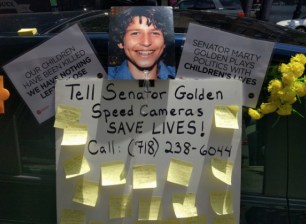 OUR CHILDREN
HAVE BEEN KILLED
WE HAVE NOTHING
LEFT LOSE
SENATOR MARTY
GOLDEN PLAYS
POLITICS WITH
CHILDREN'S LIVES
Tell Senator Golden
Speed Cameras
SAVE LIVES!
Call: (718) 238-6044